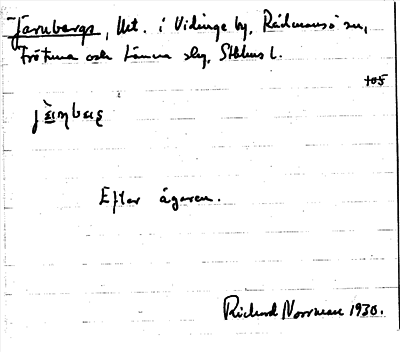 Järnbergs, lht. i Vidinge by, Rådmansö sn,
Frötuna och Länna sly, Sthlms l.
+05
Efter ägaren.
Richard Norrman 1930.